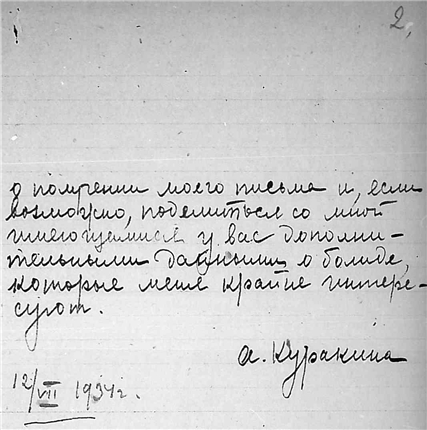 2,
о получении моего письма и, если
возможно, поделиться со мной
имеющимися у вас дополни-
тельными данными о болиде,
которые меня крайне интере-
суют.
А. Куракина
12/VII 1934г.